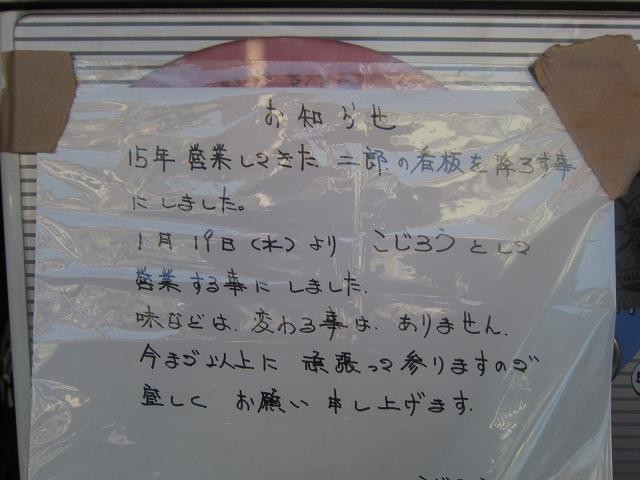 お知らせ
15年営業してきた 二郎の看板を降ろす事
にしました。
1月19日(水)より こじろうとして
営業する事にしました.
味などは、変わる事は、ありません.
今まで以上に 頑張って参りますので
宜しく お願い 申し上げます.